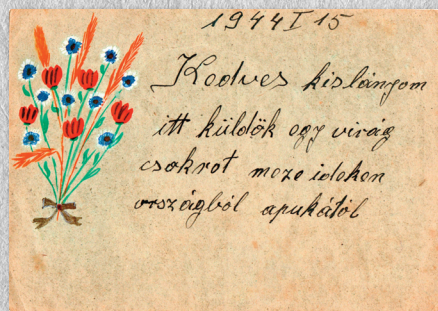 1944 I 15
Kedves kislányom
itt küldök egy virág
csokrot meze ideken
országból apukától